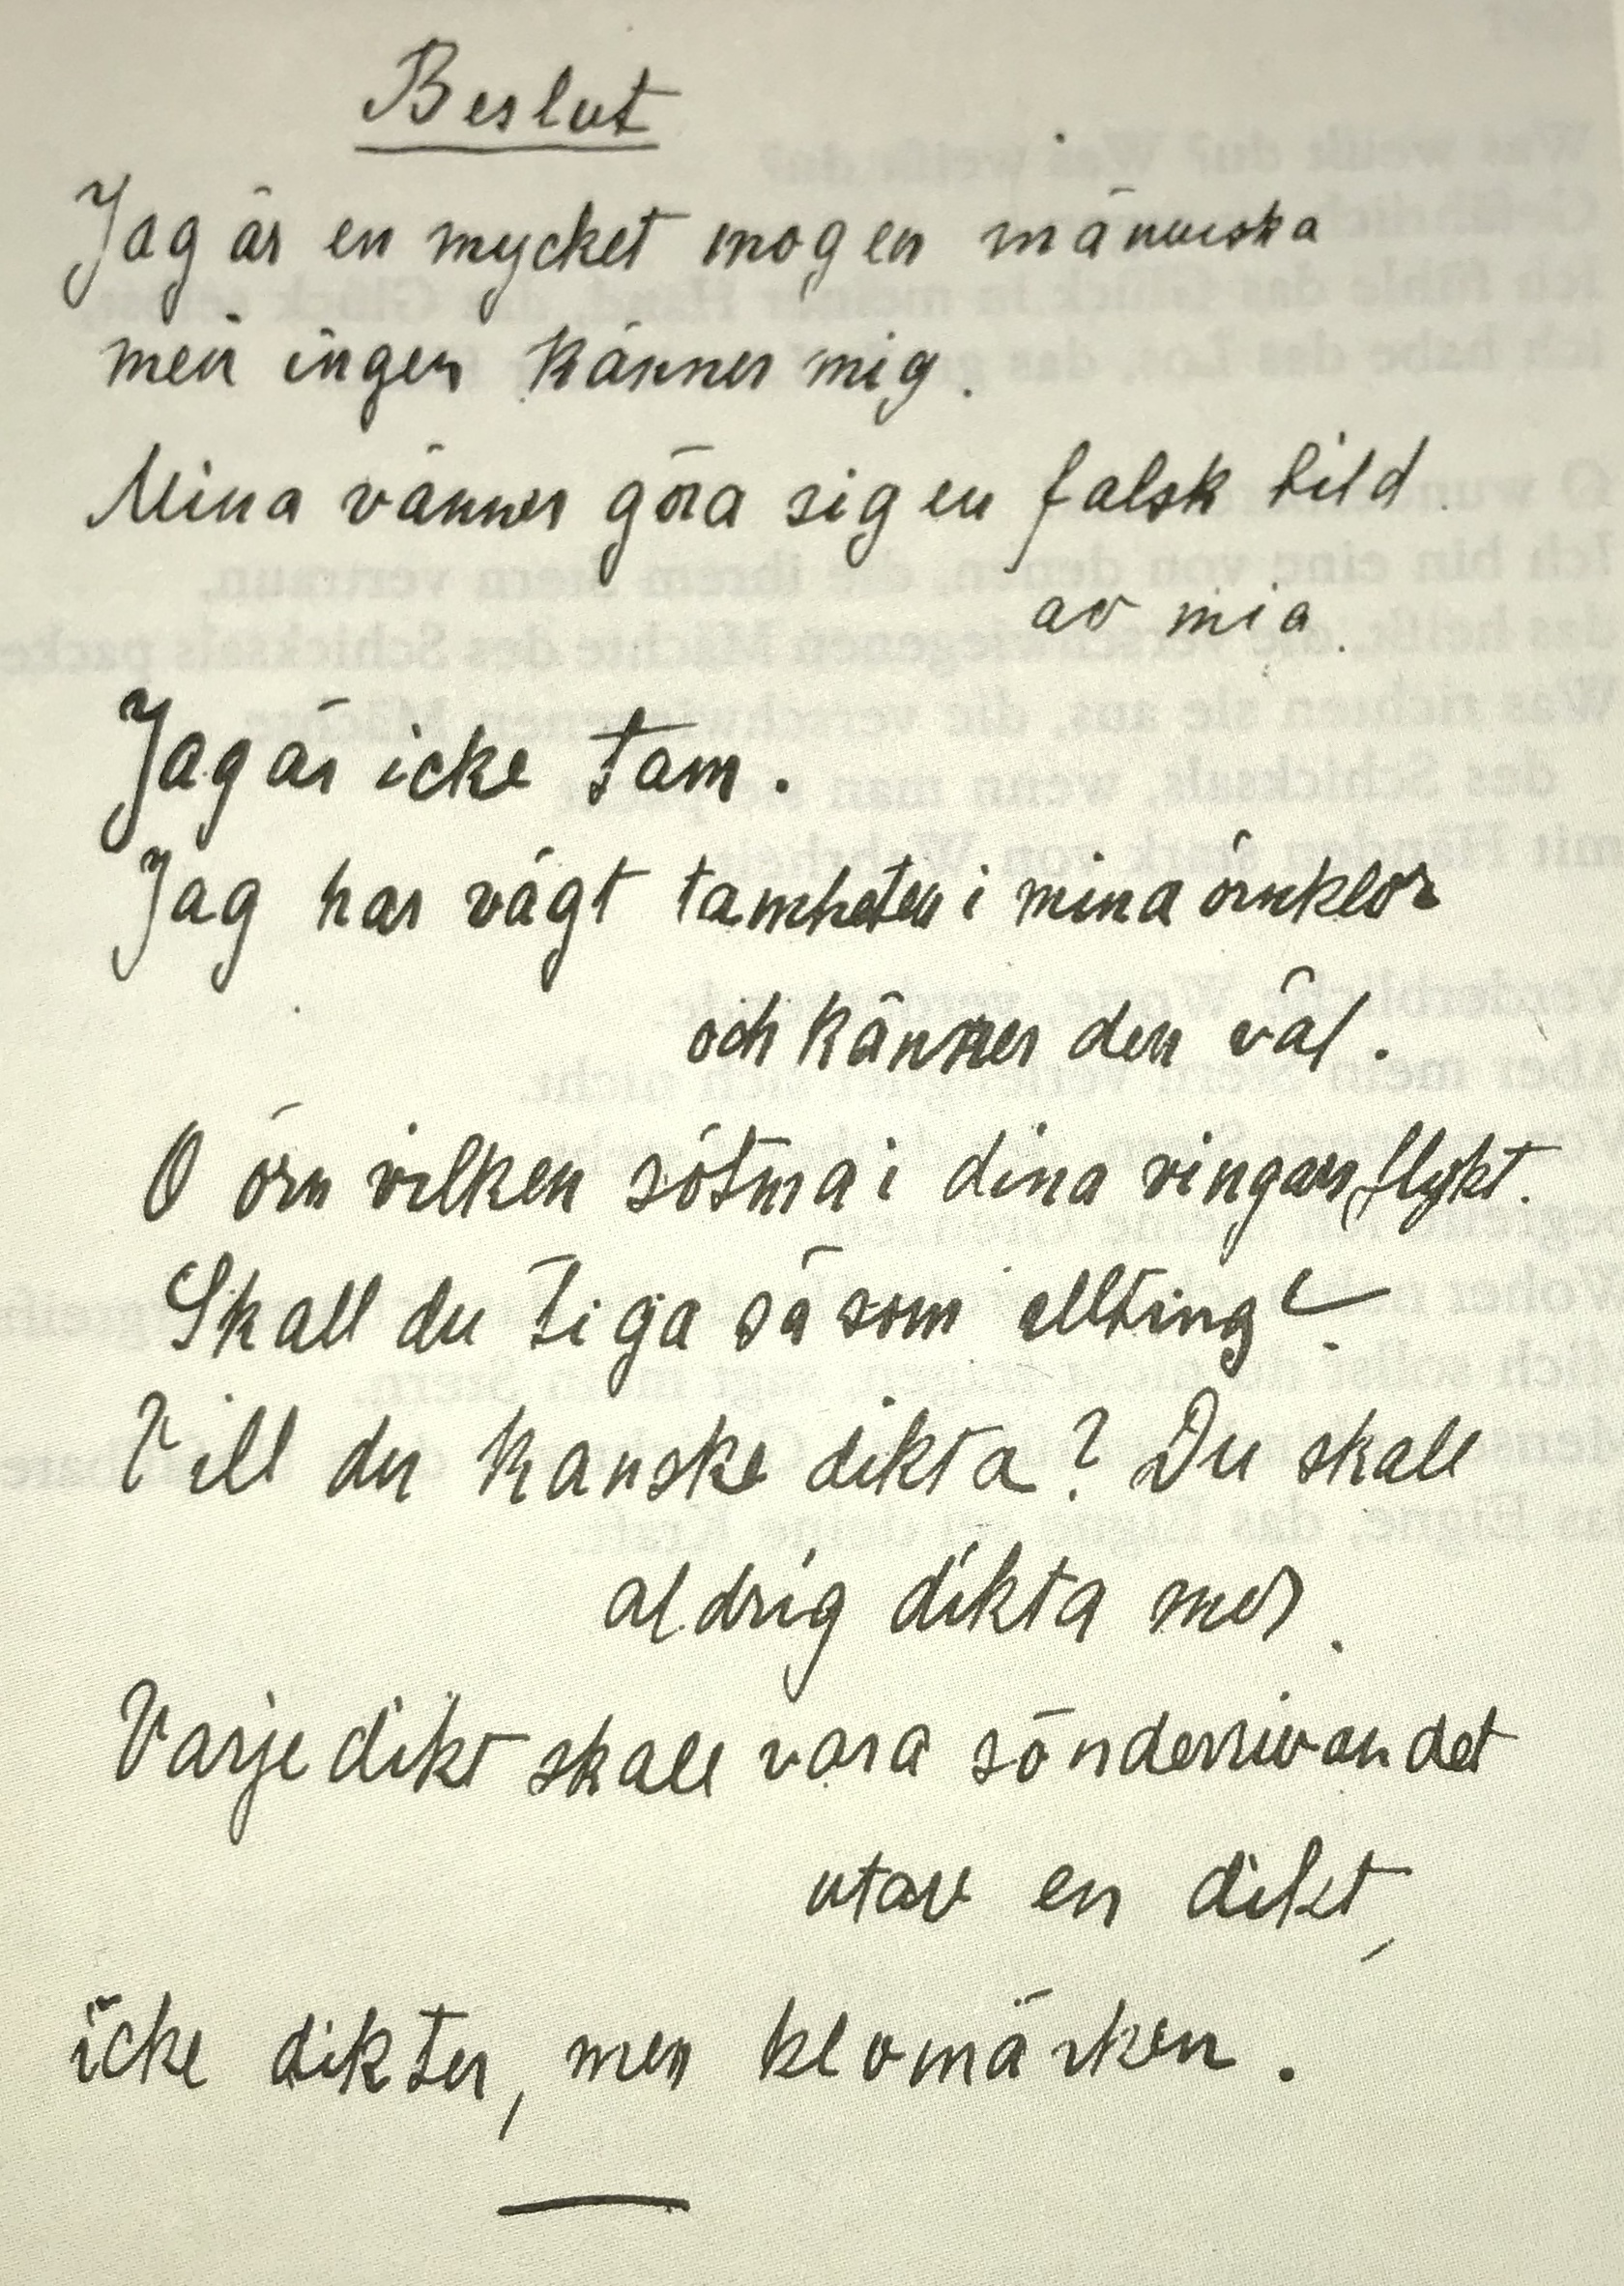 Beslut
Jag är en mycket mogen människa
men ingen känner mig.
Mina vänner göra sig en falsk bild
av mig.
Jag är icke tam.
Jag har vägt tamheten i mina örnklor
och känner den väl.
O örn vilken sötma i dina vingars flykt.
Skall du tiga såsom allting?
Vill du kanske dikta? Du skall
aldrig dikta mer.
Varje dikt skall vara sönderrivandet
utav en dikt,
icke dikter, men klomärken.